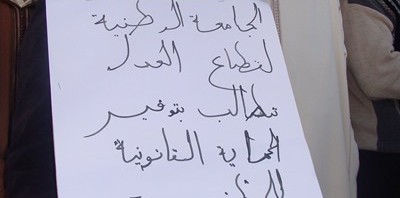 الجامعة الوطنية
لقطاع العدل
تطالب بتوفير
الحماية القانونية